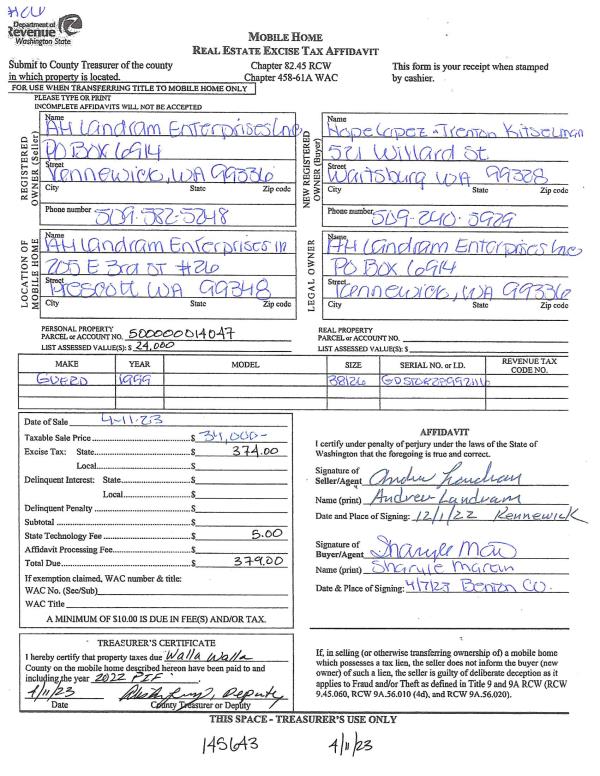 HCW
Department of
Revenue
Washington State
MOBILE HOME
REAL ESTATE EXCISE TAX AFFIDAVIT
Submit to County Treasurer of the county
in which property is located.
Chapter 82.45 RCW
Chapter 458-61A WAC
This form is your receipt when stamped
by cashier.
FOR USE WHEN TRANSFERRING TITLE TO MOBILE HOME ONLY
PLEASE TYPE OR PRINT
INCOMPLETE AFFIDAVITS WILL NOT BE ACCEPTED
REGISTERED OWNER (Seller)
Name
AH Landram Enterprises Inc
PO BOX 6914
Street
Kennewick, WA 99336
City State Zip code
Phone number 509-582-5248
NEW REGISTERED OWNER (Buyer)
Name
Hope Lopez - Trenton Kitselman
521 Willard St.
Street
Waitsburg WA 99328
City State Zip code
Phone number 509-240-5929
LOCATION OF MOBILE HOME
Name
AH Landram Enterprises in
205 E 3rd ST #26
Street
Prescott WA 99348
City State Zip code
LEGAL OWNER
Name
AH Landram Enterprises Inc
PO BOX 6914
Street
Kennewick, WA 99336
City State Zip code
PERSONAL PROPERTY
PARCEL or ACCOUNT NO. 500000014047
LIST ASSESSED VALUE(S): $ 24,000
REAL PROPERTY
PARCEL or ACCOUNT NO.
LIST ASSESSED VALUE(S): $
MAKE YEAR MODEL SIZE SERIAL NO. or I.D. REVENUE TAX CODE NO.
GUERD 1999 38/26
Date of Sale 4-11-23
Taxable Sale Price $ 34,000-
Excise Tax: State $ 374.00
Local $
Delinquent Interest: State $
Local $
Delinquent Penalty $
Subtotal $
State Technology Fee $ 5.00
Affidavit Processing Fee $
Total Due $ 379.00
If exemption claimed, WAC number & title:
WAC No. (Sec/Sub)
WAC Title
A MINIMUM OF $10.00 IS DUE IN FEE(S) AND/OR TAX.
AFFIDAVIT
I certify under penalty of perjury under the laws of the State of
Washington that the foregoing is true and correct.
Signature of
Seller/Agent Andrew Landram
Name (print) Andrew Landram
Date and Place of Signing: 12/1/22 Kennewick
Signature of
Buyer/Agent
Name (print) Sharyle Martin
Date & Place of Signing: 4/7/23 Benton CO.
TREASURER'S CERTIFICATE
I hereby certify that property taxes due Walla Walla
County on the mobile home described hereon have been paid to and
including the year 2022 PIF.
4/11/23 Deputy
Date County Treasurer or Deputy
If, in selling (or otherwise transferring ownership of) a mobile home
which possesses a tax lien, the seller does not inform the buyer (new
owner) of such a lien, the seller is guilty of deliberate deception as it
applies to Fraud and/or Theft as defined in Title 9 and 9A RCW (RCW
9.45.060, RCW 9A.56.010 (4d), and RCW 9A.56.020).
THIS SPACE - TREASURER'S USE ONLY
145643 4/11/23